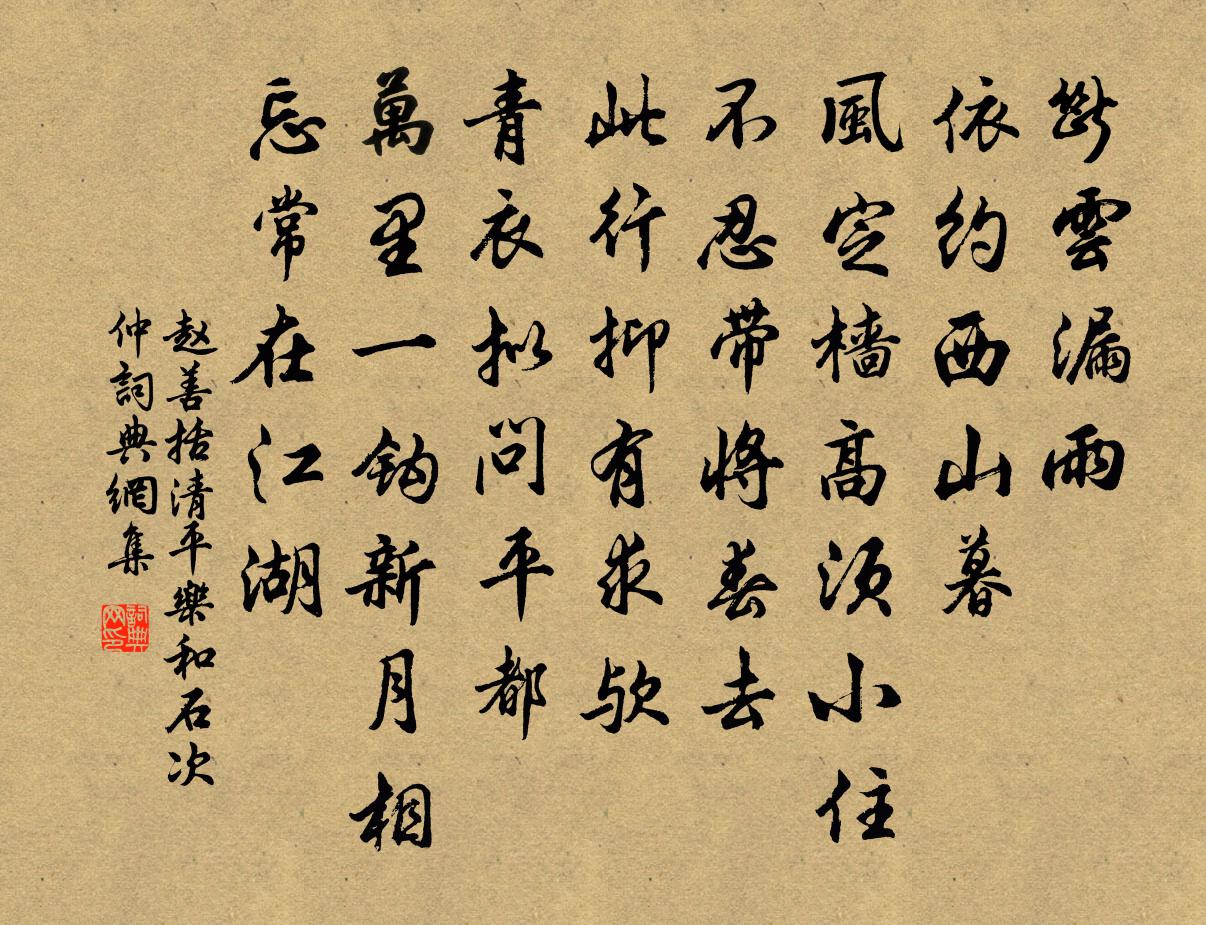 斷雲漏雨
依約西山暮
風定檣高須小住
不忍帶將春去
此行抑有求歟
青衣擬問平都
萬里一鈎新月相
忘常在江湖
赵善括清平樂和石次
仲詞典網集
詞典网印